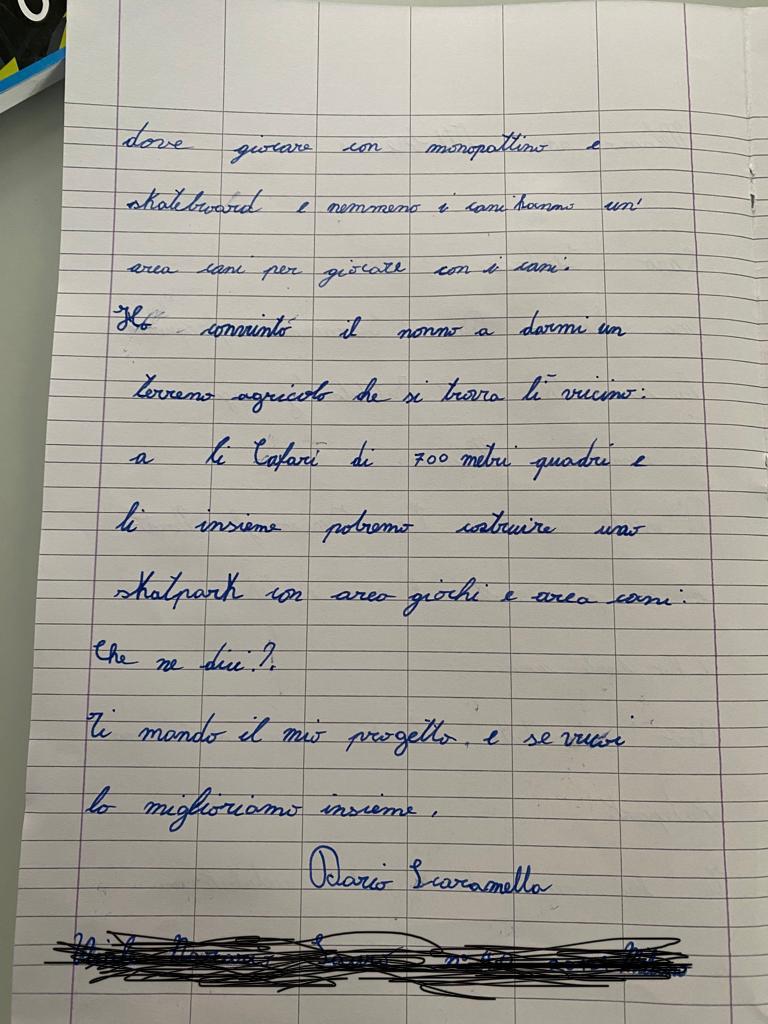 dove giocare con monopattino e
skatebuard e nemmeno i cani hanno un'
area cani per giocare con i cani.
Ho convinto il nonno a darmi un
terreno agricolo che si trova lì vicino:
a li Cafari di 700 metri quadri e
li insieme potremo costruire uno
skatpark con area giochi e area cani.
Che ne dici?.
Ti mando il mio progetto, e se vuoi
lo miglioriamo insieme.
Dario Scaramella